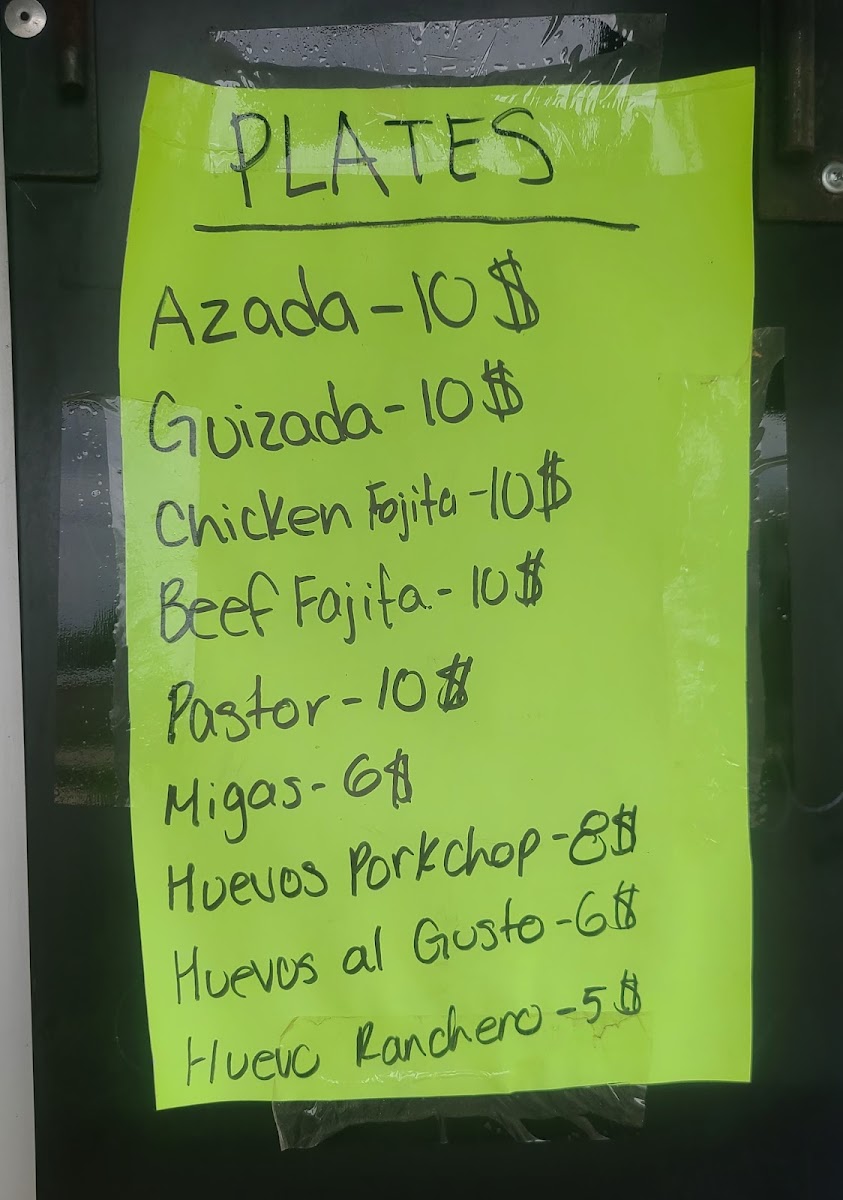 PLATES
Azada - 10$
Guizada - 10$
Chicken Fajita - 10$
Beef Fajita - 10$
Pastor - 10$
Migas - 6$
Huevos Porkchop - 8$
Huevos al Gusto - 6$
Huevo Ranchero - 5$